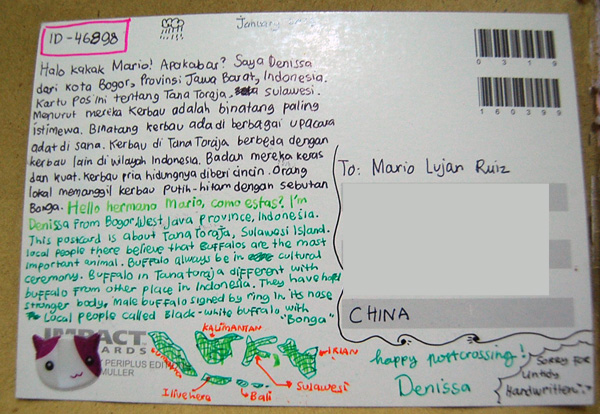 ID-46898
January
Halo kakak Mario! Apakabar? Saya Denissa
dari kota Bogor, Provinsi Jawa Barat, Indonesia.
Kartu pos ini tentang Tana Toraja, Sulawesi.
Menurut mereka Kerbau adalah binatang paling
istimewa. Binatang kerbau ada di berbagai upacara
adat di sana. Kerbau di Tana Toraja berbeda dengan
kerbau lain di wilayah Indonesia. Badan mereka keras
dan kuat. Kerbau pria hidungnya diberi cincin. Orang
lokal memanggil kerbau putih-hitam dengan sebutan
Bonga. Hello hermano Mario, como estas? I'm
Denissa from Bogor, West Java province, Indonesia.
This postcard is about Tana Toraja, Sulawesi Island.
local people there believe that Buffalos are the most
important animal. Buffalo always be in cultural
ceremony. Buffalo in Tana toraja different with
buffalo from other place in Indonesia. They have
stronger body, male buffalo signed by ring in its nose
Local people called Black-white buffalo with
"Bonga"
0319
160399
To: Mario Lujan Ruiz
CHINA
IMPACT
PERIPLUS
MULLER
KALIMANTAN
IRIAN
Sulawesi
Bali
I live here
happy postcrossing!
Denissa
Sorry for
Untidy
Handwritten